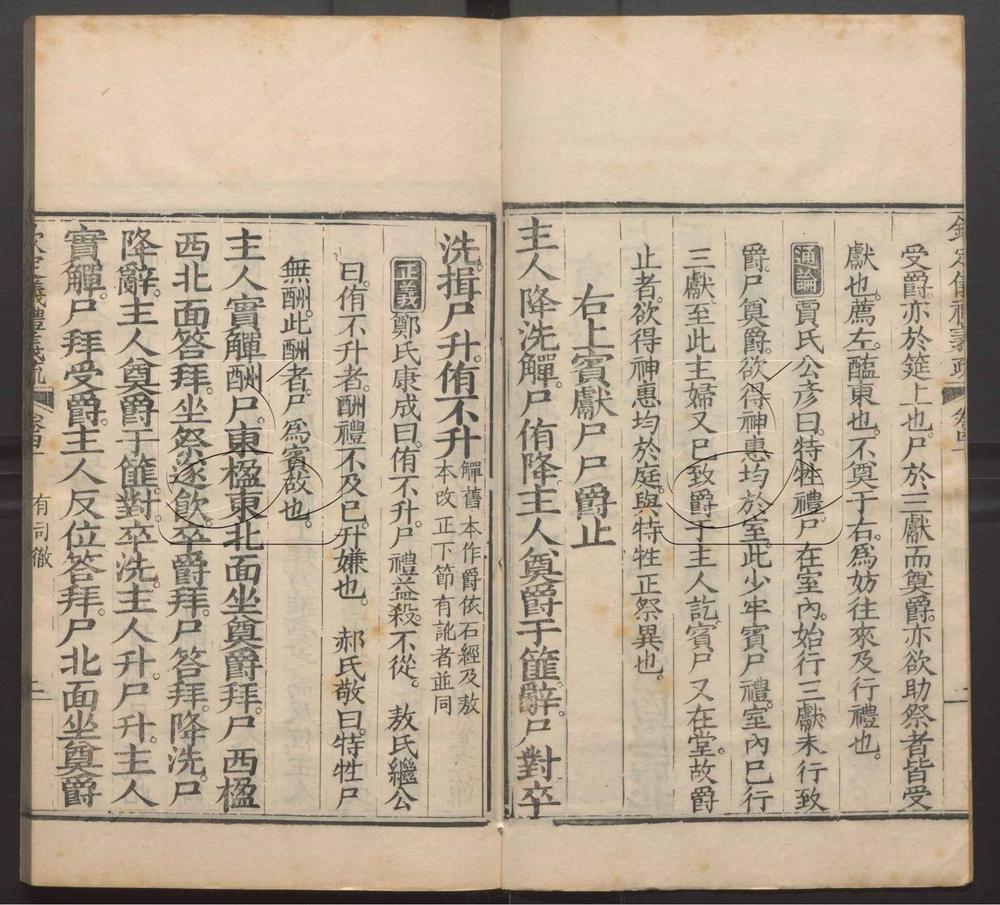 受爵亦於筵上也。尸於三獻而奠爵。亦欲助祭者皆受
獻也。薦左。醢東也。不奠于右。爲妨往來及行禮也。
通論 賈氏公彥曰。特牲禮尸在室內。始行三獻。未行致
爵。尸奠爵。欲得神惠均於室。此少牢賓尸禮。室內已行
三獻。至此主婦又已致爵于主人訖。賓尸又在堂。故爵
止者。欲得神惠均於庭。與特牲正祭異也。
右上賓獻尸尸爵止
主人降洗觶。尸侑降。主人奠爵于篚。辭。尸對。卒
洗。揖。尸升。侑不升。觶舊本作爵依石經及敖
本改正下節有訛者並同
正義 鄭氏康成曰。侑不升。尸禮益殺。不從。 敖氏繼公
曰。侑不升者。酬禮不及已。升嫌也。 郝氏敬曰。特牲尸
無酬。此酬者。尸爲賓故也。
主人實觶酬尸。東楹東。北面坐奠爵。拜。尸西楹
西。北面答拜。坐祭。遂飲。卒爵。拜。尸答拜。降洗。尸
降辭。主人奠爵于篚。對。卒洗。主人升。尸升。主人
實觶。尸拜受爵。主人反位答拜。尸北面坐奠爵
有司徹